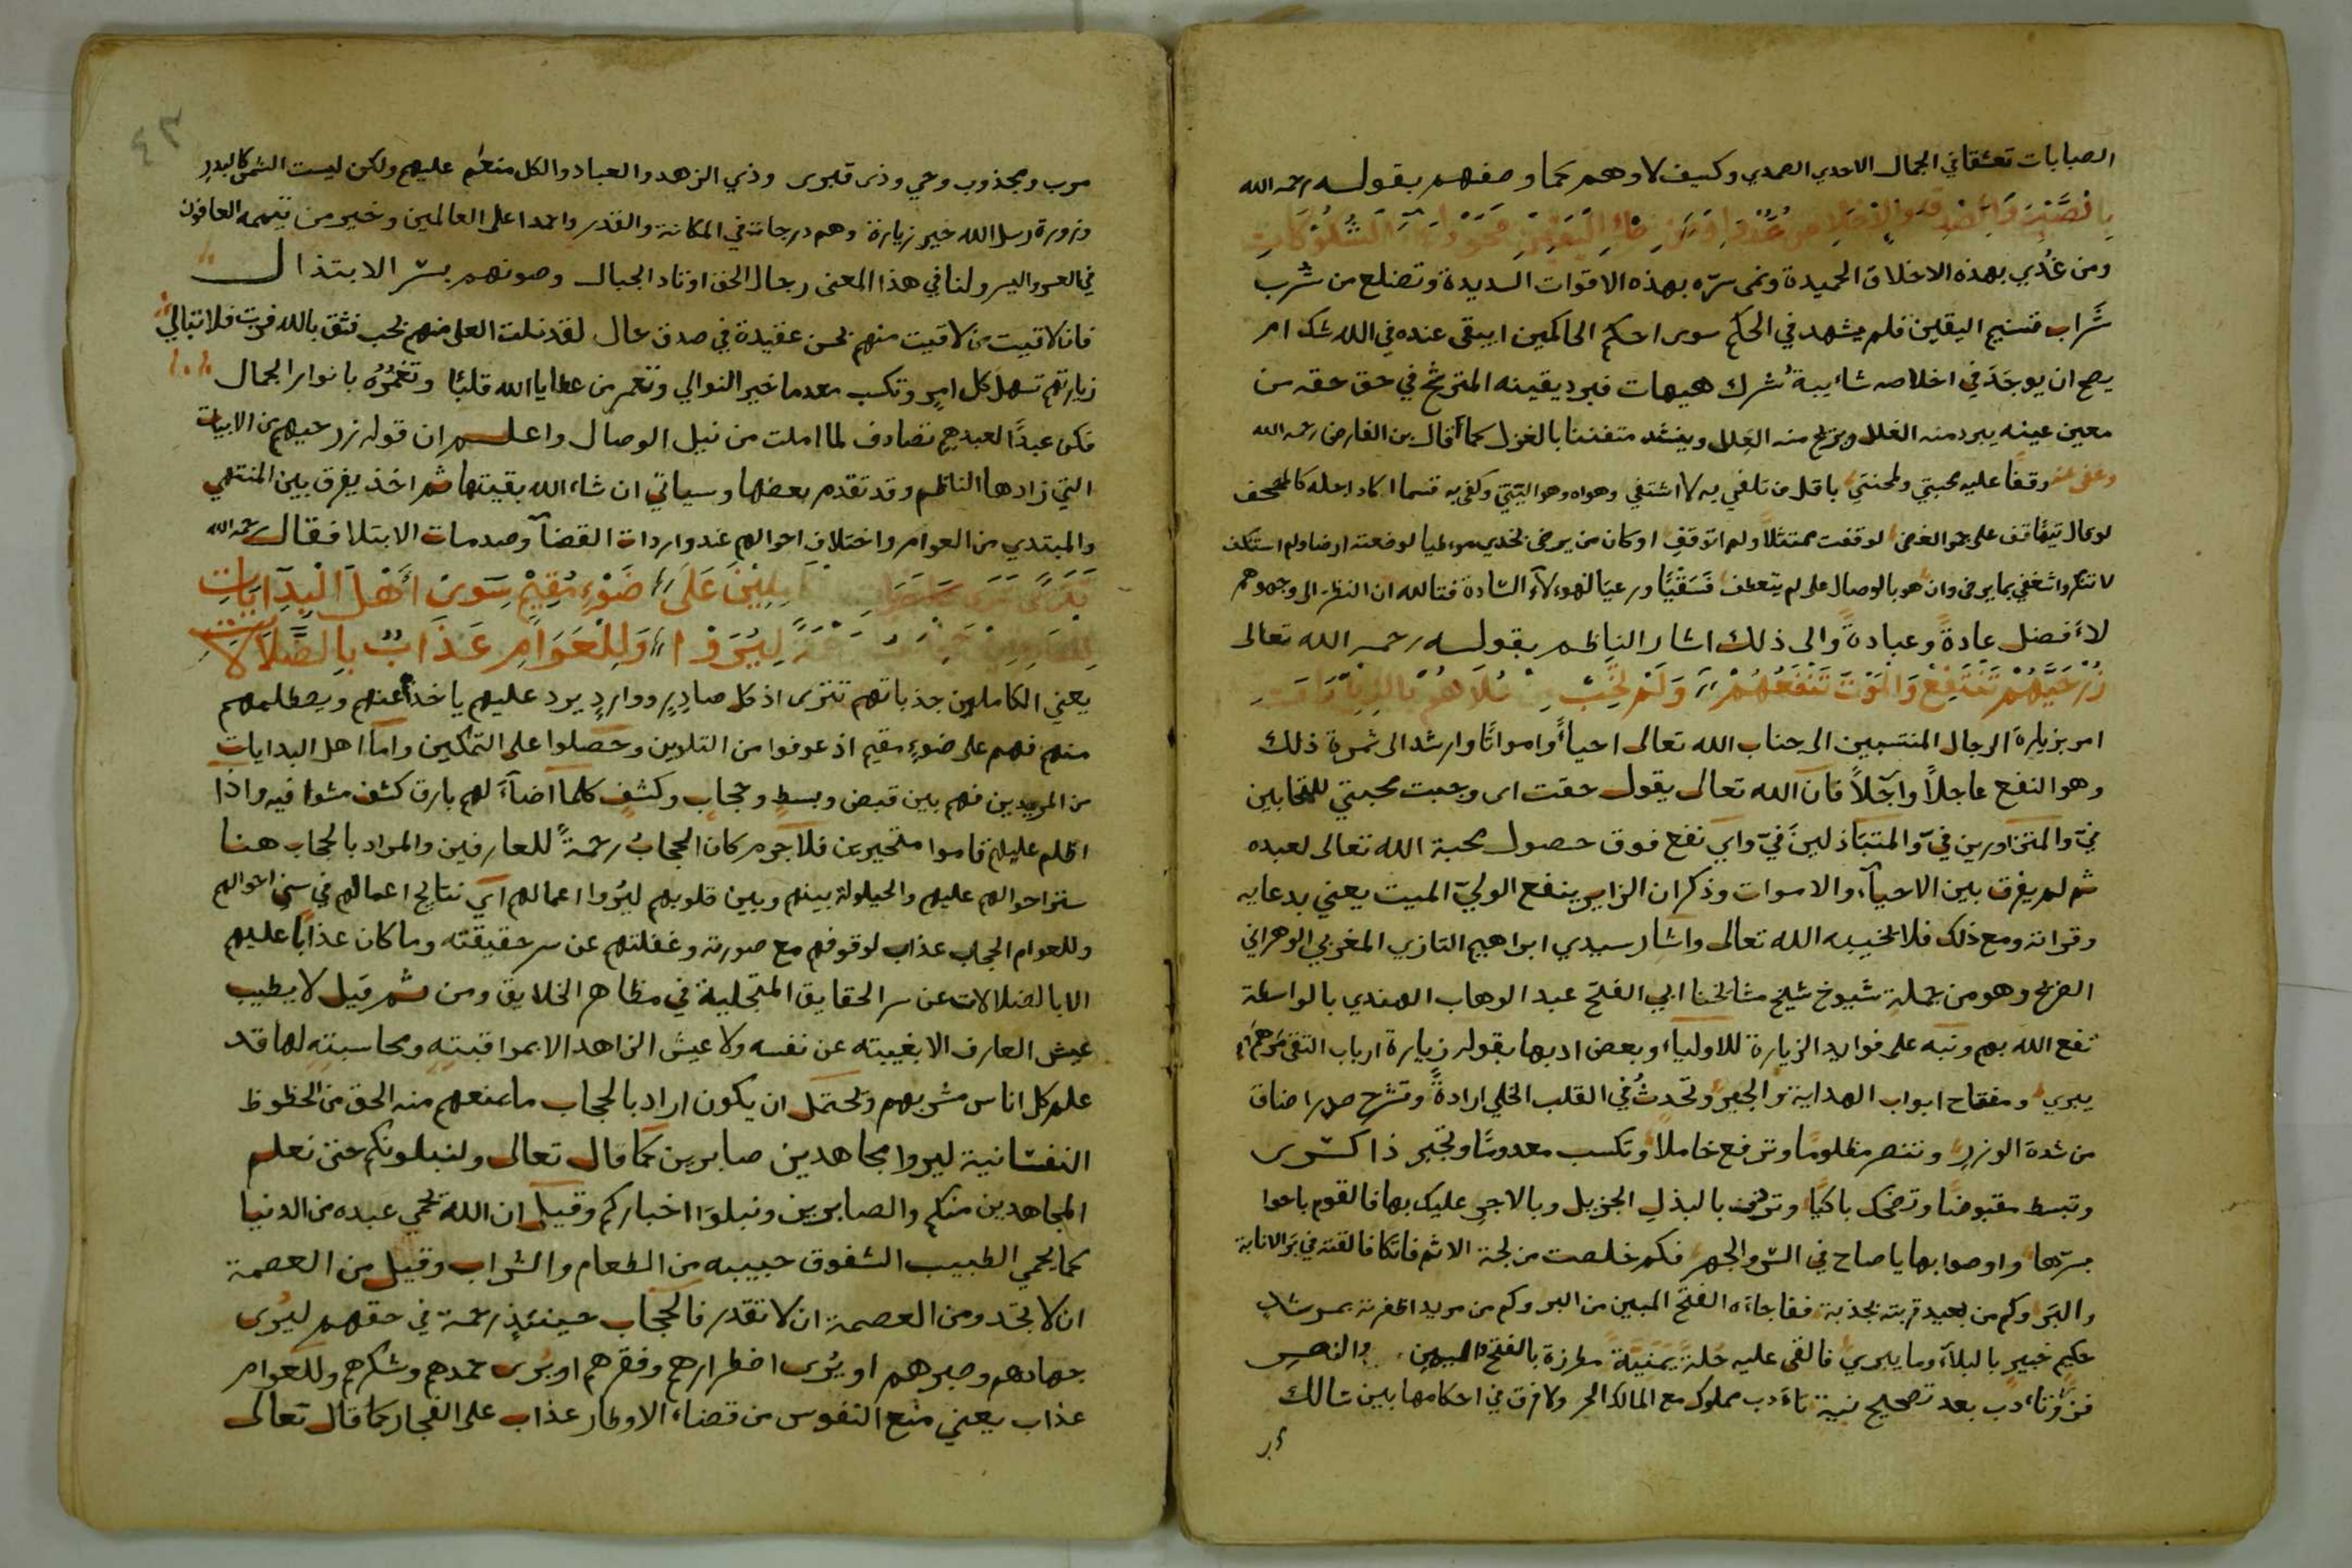 الصبابات تعشقا في الجمال الاحدي الصمدي وكيف لا وهم كما وصفهم بقوله رحمه الله
ومن غذي بهذه الاخلاق الحميدة ونمى سره بهذه الاقوات السديدة وتضلع من شرب
شراب تسنيم اليقين فلم يشهد في الحكم سوى احكم الحاكمين ايبقى عنده في الله شك ام
يصح ان يوجد في اخلاصه شائبة شرك هيهات فبرد يقينه المتزج في حق حقه من
معين عينه يبرد منه الغلل ويزيح منه العلل وينشد متفننا بالغزل كما قال بن الفارض رحمه الله
وعفى عنه وقفا عليه محبتي ولمحنتي باقل من تلفي به لا اشتفي وهواه وهو اليتي وكفى به قسما اكاد اجله كالمصحف
لو قال تيها قف على جمر الغضى لوقفت ممتثلا ولم اتوقف او كان من يرضى بخدي موطيا لوضعته ارضا ولم استنكف
لا تنكروا شغفي بما يرضى وان هو بالوصال علي لم يتعطف فسقيا ورعيا لهولاء السادة فتالله ان النظر الى وجوههم
لأفضل عادة وعبادة والى ذلك اشار الناظم بقوله رحمه الله تعالى
زر حيهم تنتفع والموت تنفعهم ولم تخب
امر بزيارة الرجال المنتسبين الى جناب الله تعالى احياء وامواتا وارشد الى ثمرة ذلك
وهو النفع عاجلا وآجلا فان الله تعالى يقول حقت اى وجبت محبتي للمتحابين
في والمتزاورين في والمتباذلين في واي نفع فوق حصول محبة الله تعالى لعبده
ثم لم يفرق بين الاحياء والاموات وذكر ان الزاير ينفع الولي الميت يعني بدعايه
وقراته ومع ذلك فلا يخيبه الله تعالى واشار سيدي ابراهيم التازي المغربي الوهراني
الضريح وهو من جملة شيوخ شيخ مشايخنا ابي الفتح عبد الوهاب الهندي بالواسطة
نفع الله بهم ونبه على فوايد الزيارة للاولياء وبعض ادبها بقوله زيارة ارباب التقى مرهم
يبري ومفتاح ابواب الهداية والخير وتحدث في القلب الخلي ارادة وتشرح صدرا ضاق
من شدة الوزر وتنصر مظلوما وترفع خاملا وتكسب معدوما وتجبر ذا كسر
وتبسط مقبوضا وتضحك باكيا وترفق بالبذل الجزيل وبالاجر عليك بها فالقوم باحوا
بسرها واوصوا بها يا صاح في السر والجهر فكم خلصت من لجة الاثم فاتكا فالقته في بر الانابة
والبر وكم من بعيد قربته بجذبة ففاجاءه الفتح المبين من البر وكم من مريد اظفرته بمرشد
حكيم خبير بالبلاء وما يبري فالقى عليه حلة يمنية مطرزة بالفتح والنصر
فزر وتادب بعد تصحيح نية تادب مملوك مع المالك الحر ولا فرق في احكامها بين سالك
مرب ومجذوب وحي وذى قبر وذي الزهد والعباد والكل منعم عليهم ولكن ليست الشمس كالبدر
وزورة رسل الله خير زيارة وهم درجات في المكانة والقدر واحمد اعلى العالمين وخير من تيممه العافون
في العسر واليسر ولنا في هذا المعنى رجال الحق اوتاد الجبال وصونهم بستر الابتذال
فان لاقيت من لاقيت منهم بحسن عقيدة في صدق حال لقد نلت العلى منهم بحب فثق بالله فلا تبالي
زيارتهم تسهل كل امر وتكسب معدما خير النوالي وتعمر من عطايا الله قلبا وتغمره بانوار الجمال
فكن عبدا لعبدهم تصادف لما املت من نيل الوصال واعلم ان قوله زر حيهم من الابيات
التي زادها الناظم وقد تقدم بعضها وسياتي ان شاء الله بقيتها ثم اخذ يفرق بين المنتهي
والمبتدي من العوام واختلاف احوالهم عند واردات القضاء وصدمات الابتلا فقال رحمه الله
على ضوء مقيم سوى أهل البدايات
ليروا وللعوام عذاب بالضلالات
يعني الكاملين جذباتهم تترى اذ كل صادر ووارد يرد عليهم ياخذ عنهم ويصطلمهم
منهم فهم على ضوء مقيم اذ عوفوا من التلوين وحصلوا على التمكين واما اهل البدايات
من المريدين فهم بين قبض وبسط وحجاب وكشف كلما اضاء لهم بارق كشف مشوا فيه واذا
اظلم عليهم قاموا متحيرين فلا جرم كان الحجاب رحمة للعارفين والمراد بالحجاب هنا
ستر احوالهم عليهم والحيلولة بينهم وبين قلوبهم ليروا اعمالهم اي نتايج اعمالهم في سني احوالهم
وللعوام الحجاب عذاب لوقوفهم مع صورته وغفلتهم عن سر حقيقته وما كان عذابا عليهم
الا بالضلالات عن سر الحقايق المتجلية في مظاهر الخلايق ومن ثم قيل لا يطيب
عيش العارف الا بغيبته عن نفسه ولا عيش الزاهد الا بمراقبته ومحاسبته لها قد
علم كل اناس مشربهم ويحتمل ان يكون اراد بالحجاب ما يمنعهم منه الحق من الحظوظ
النفسانية ليروا مجاهدين صابرين كما قال تعالى ولنبلونكم حتى نعلم
المجاهدين منكم والصابرين ونبلوا اخباركم وقيل ان الله يحمي عبده من الدنيا
كما يحمي الطبيب الشفوق حبيبه من الطعام والشراب وقيل من العصمة
ان لا تجد ومن العصمة ان لا تقدر فالحجاب حينئذ رحمة في حقهم ليرى
جهادهم وصبرهم او يرى اضطرارهم وفقرهم او يرى حمدهم وشكرهم وللعوام
عذاب يعني منع النفوس من قضاء الاوطار عذاب على الفجار كما قال تعالى